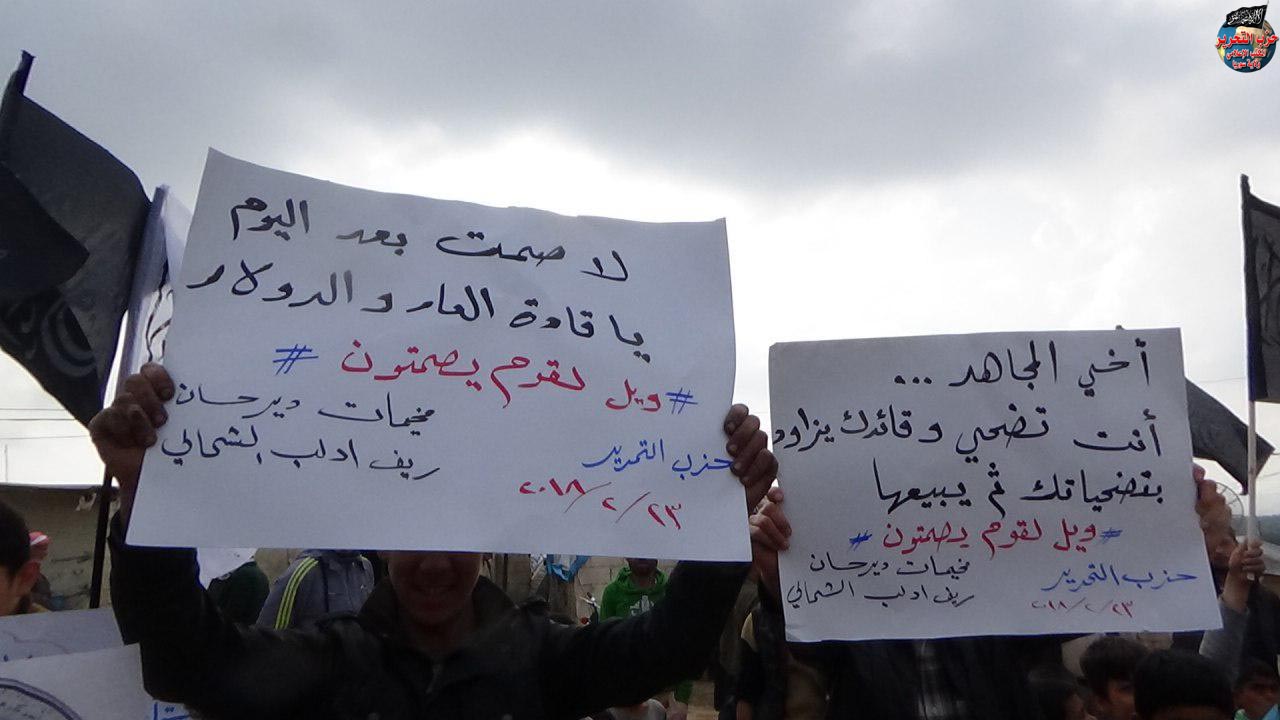 حزب التحرير
المكتب الإعلامي
ولاية سوريا
لا صمت بعد اليوم
يا قادة العار والدولار
#ويل لقوم يصمتون#
مخيمات ديرحسان
ريف ادلب الشمالي
حزب التحرير
٢٠١٨/٢/٢٣
أخي المجاهد ...
أنت تضحي وقائدك يزاود
بتضحياتك ثم يبيعها
#ويل لقوم يصمتون#
مخيمات ديرحسان
ريف ادلب الشمالي
حزب التحرير
٢٠١٨/٢/٢٣